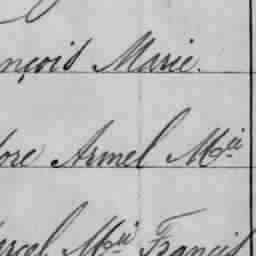 nçois Marie.
ore Armel Mie
arcel Mie Francis